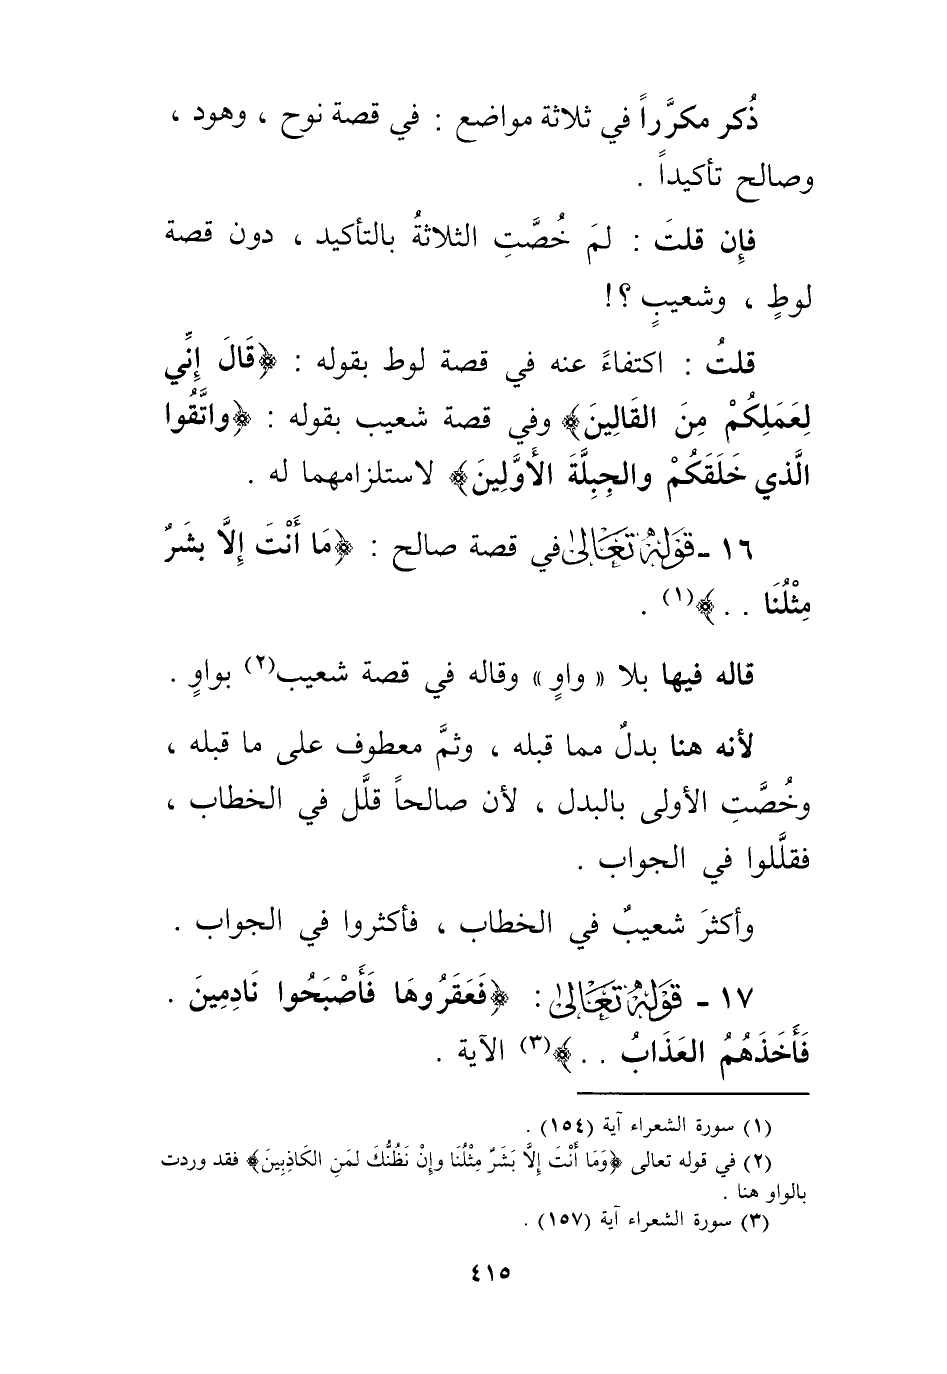 ذُكر مكرَّراً في ثلاثة مواضع : في قصة نوح ، وهود ،
وصالح تأكيداً .
فإِن قلتَ : لمَ خُصَّتِ الثلاثةُ بالتأكيد ، دون قصة
لوطٍ ، وشعيبٍ ؟!
قلتُ : اكتفاءً عنه في قصة لوط بقوله : ﴿قَالَ إِنِّي
لِعَمَلِكُمْ مِنَ القَالِينَ﴾ وفي قصة شعيب بقوله : ﴿واتَّقُوا
الَّذي خَلَقَكُمْ والجِبِلَّةَ الأَوَّلِينَ﴾ لاستلزامهما له .
١٦ - قَوْلُهُ تَعَالَى في قصة صالح : ﴿مَا أَنْتَ إِلَّا بشَرٌ
مِثْلُنَا . . ﴾(١) .
قاله فيها بلا « واوٍ » وقاله في قصة شعيب(٢) بواوٍ .
لأنه هنا بدلٌ مما قبله ، وثمَّ معطوف على ما قبله ،
وخُصَّتِ الأولى بالبدل ، لأن صالحاً قلَّل في الخطاب ،
فقلَّلوا في الجواب .
وأكثرَ شعيبٌ في الخطاب ، فأكثروا في الجواب .
١٧ - قَوْلُهُ تَعَالَى : ﴿فَعَقَرُوهَا فَأَصْبَحُوا نَادِمِينَ .
فَأَخَذَهُمُ العَذَابُ . . ﴾(٣) الآية .
(١) سورة الشعراء آية (١٥٤) .
(٢) في قوله تعالى ﴿وَمَا أَنْتَ إِلَّا بَشَرٌ مِثْلُنَا وإِنْ نَظُنُّكَ لمَنِ الكَاذِبِينَ﴾ فقد وردت
بالواو هنا .
(٣) سورة الشعراء آية (١٥٧) .
٤١٥